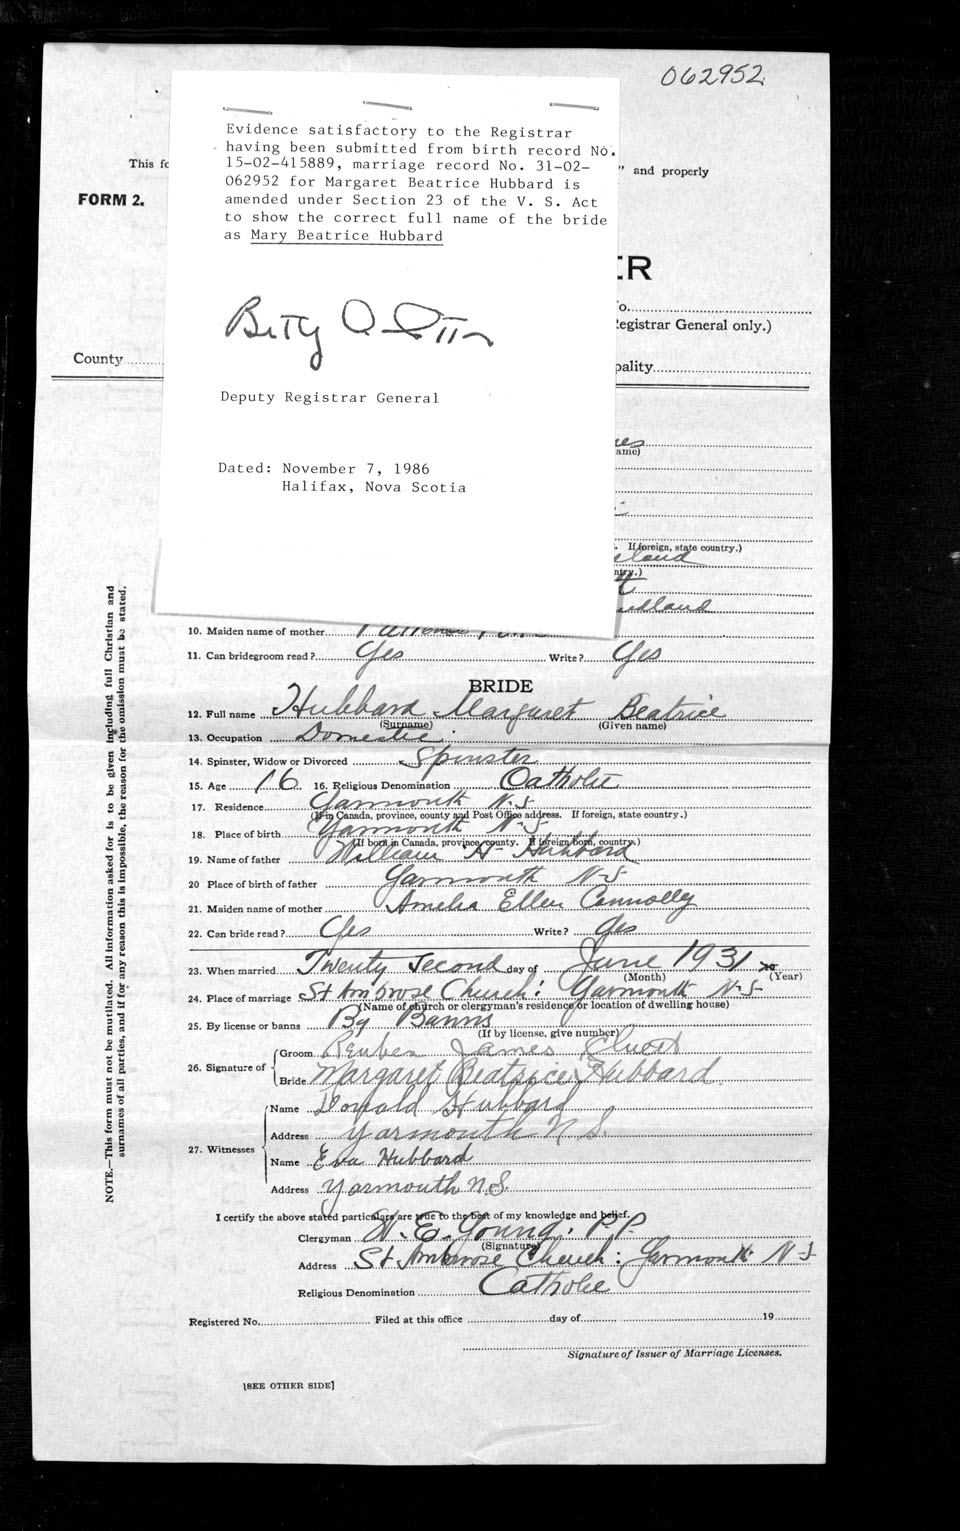 062952
Evidence satisfactory to the Registrar
having been submitted from birth record No.
15-02-415889, marriage record No. 31-02-
062952 for Margaret Beatrice Hubbard is
amended under Section 23 of the V. S. Act
to show the correct full name of the bride
as Mary Beatrice Hubbard
Deputy Registrar General
Dated: November 7, 1986
Halifax, Nova Scotia
This fo
" and properly
FORM 2.
ER
o.
egistrar General only.)
County
pality
ame)
If foreign, state country.)
ntry.)
10. Maiden name of mother
11. Can bridegroom read? Yes Write? Yes
BRIDE
12. Full name Hubbard Margaret Beatrice
(Surname) (Given name)
13. Occupation Domestic
14. Spinster, Widow or Divorced Spinster
15. Age 16 16. Religious Denomination Catholic
17. Residence Yarmouth N.S
(If in Canada, province, county and Post Office address. If foreign, state country.)
18. Place of birth Yarmouth N.S
(If born in Canada, province, county. If foreign born, country.)
19. Name of father William H Hubbard
20 Place of birth of father Yarmouth N-S
21. Maiden name of mother Amelia Ellen Connolly
22. Can bride read? Yes Write? Yes
23. When married Twenty Second day of June 1931
(Month) (Year)
24. Place of marriage St Ambrose Church: Yarmouth N-S
(Name of church or clergyman's residence or location of dwelling house)
25. By license or banns By Banns
(If by license, give number)
26. Signature of
Groom Reuben James
Bride Margaret Beatrice Hubbard
27. Witnesses
Name Donald Hubbard
Address Yarmouth N.S.
Name Eva Hubbard
Address Yarmouth N.S.
I certify the above stated particulars are true to the best of my knowledge and belief.
Clergyman W. E. Young. P.P.
(Signature)
Address St Ambrose Church: Yarmouth N S
Religious Denomination Catholic
Registered No. Filed at this office day of 19
Signature of Issuer of Marriage Licenses.
[SEE OTHER SIDE]
NOTE.—This form must not be mutilated. All information asked for is to be given including full Christian and
surnames of all parties, and if for any reason this is impossible, the reason for the omission must be stated.